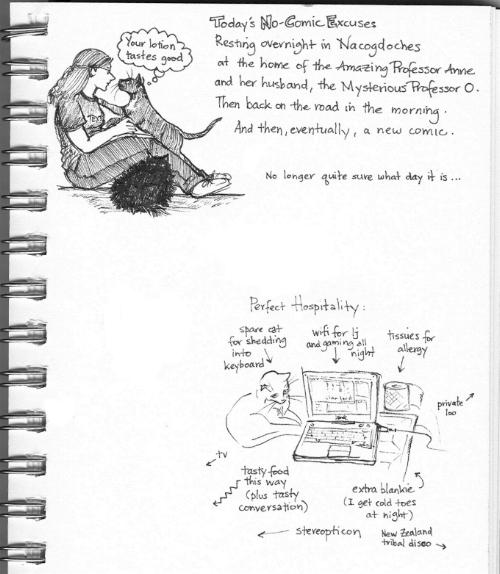 Your lotion
tastes good
TEXA
Today's No-Comic Excuses
Resting overnight in Nacogdoches
at the home of the Amazing Professor Anne
and her husband, the Mysterious Professor O.
Then back on the road in the morning.
And then, eventually, a new comic.
No longer quite sure what day it is...
Perfect Hospitality:
spare cat
for shedding
into
keyboard
wifi for lj
and gaming all
night
tissues for
allergy
private
loo
tv
tasty food
this way
(plus tasty
conversation)
extra blankie
(I get cold toes
at night)
stereopticon
New Zealand
tribal disco